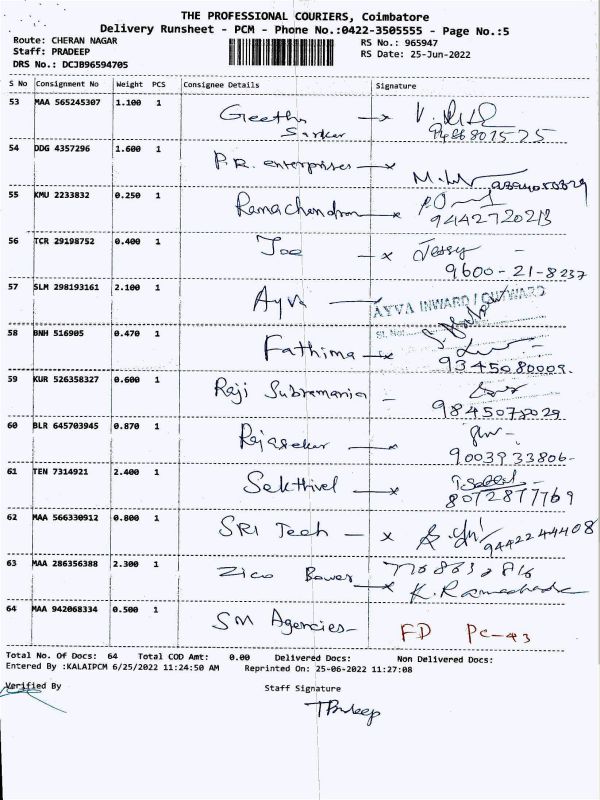 THE PROFESSIONAL COURIERS, Coimbatore
Delivery Runsheet - PCM - Phone No.:0422-3505555 - Page No.:5
Route: CHERAN NAGAR RS No.: 965947
Staff: PRADEEP RS Date: 25-Jun-2022
DRS No.: DCJB96594705
S No Consignment No Weight PCS Consignee Details Signature
53 MAA 565245307 1.100 1 Geetha
Sarker
54 DDG 4357296 1.600 1 P.R. enterprises
55 KMU 2233832 0.250 1 Ramachandran
9442720213
56 TCR 29198752 0.400 1 Joe Jessy
9600-21-8237
57 SLM 298193161 2.100 1 Ayva AYVA INWARD / OUTWARD
Sl. No:
58 BNH 516905 0.470 1 Fathima
9345080009.
59 KUR 526358327 0.600 1 Raji Subramania
9845078029
60 BLR 645703945 0.870 1 Rajasekar
9003933806-
61 TEN 7314921 2.400 1 Sakthivel
8072877769
62 MAA 566330912 0.800 1 SRI Tech 9442244408
63 MAA 286356388 2.300 1 Zico
64 MAA 942068334 0.500 1 SM Agencies- FD PC-43
Total No. Of Docs: 64 Total COD Amt: 0.00 Delivered Docs: Non Delivered Docs:
Entered By :KALAIPCM 6/25/2022 11:24:50 AM Reprinted On: 25-06-2022 11:27:08
Verified By Staff Signature